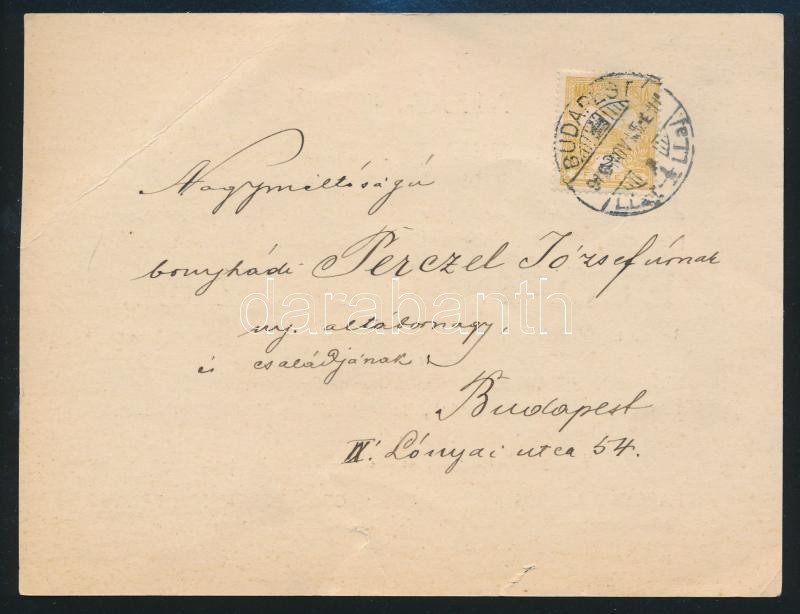 BUDAPEST
Nagyméltóságú
bonyhádi Perczel József úrnak
ny. altábornagy,
és családjának
Budapest
IX. Lónyai utca 54.
darabanth